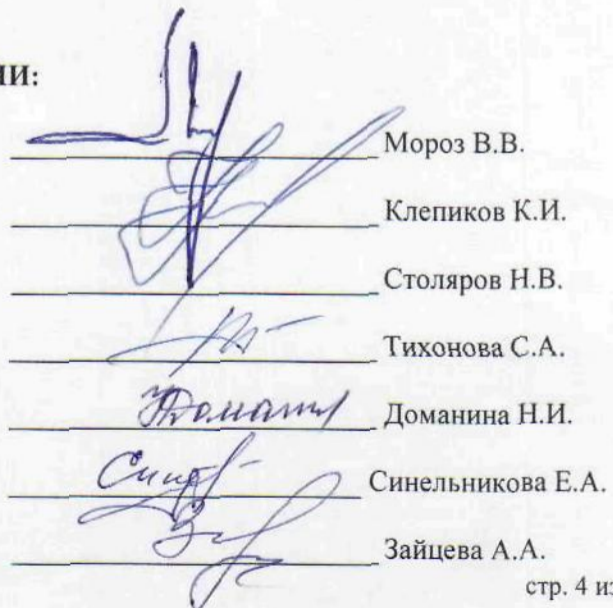 ИИ:
Мороз В.В.
Клепиков К.И.
Столяров Н.В.
Тихонова С.А.
Доманина Н.И.
Синельникова Е.А.
Зайцева А.А.
стр. 4 из